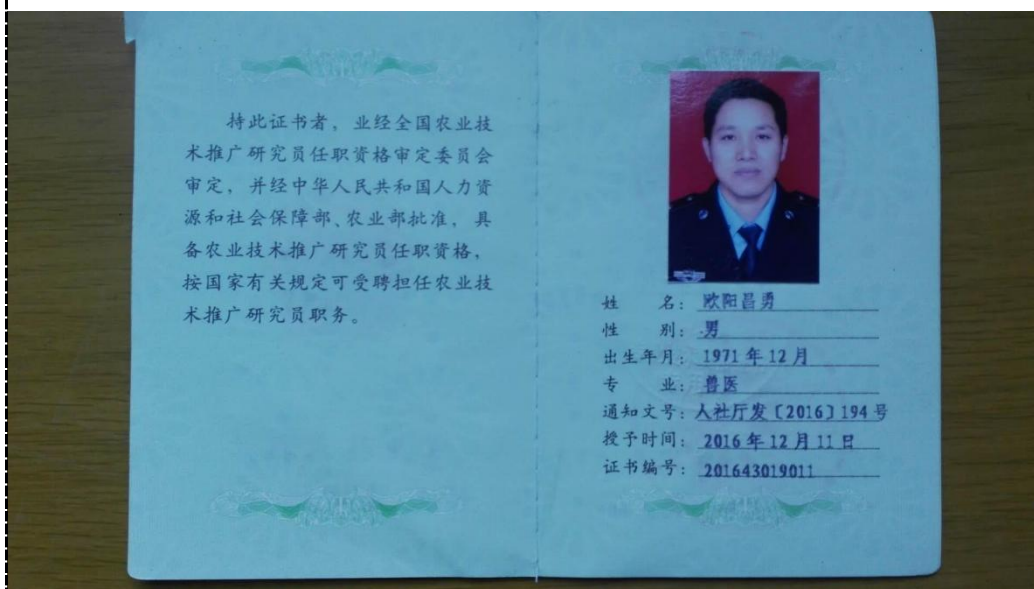 持此证书者，业经全国农业技
术推广研究员任职资格审定委员会
审定，并经中华人民共和国人力资
源和社会保障部、农业部批准，具
备农业技术推广研究员任职资格，
按国家有关规定可受聘担任农业技
术推广研究员职务。
姓 名：欧阳昌勇
性 别：男
出生年月：1971 年 12 月
专 业：兽医
通知文号：人社厅发〔2016〕194 号
授予时间：2016 年 12 月 11 日
证书编号：201643019011